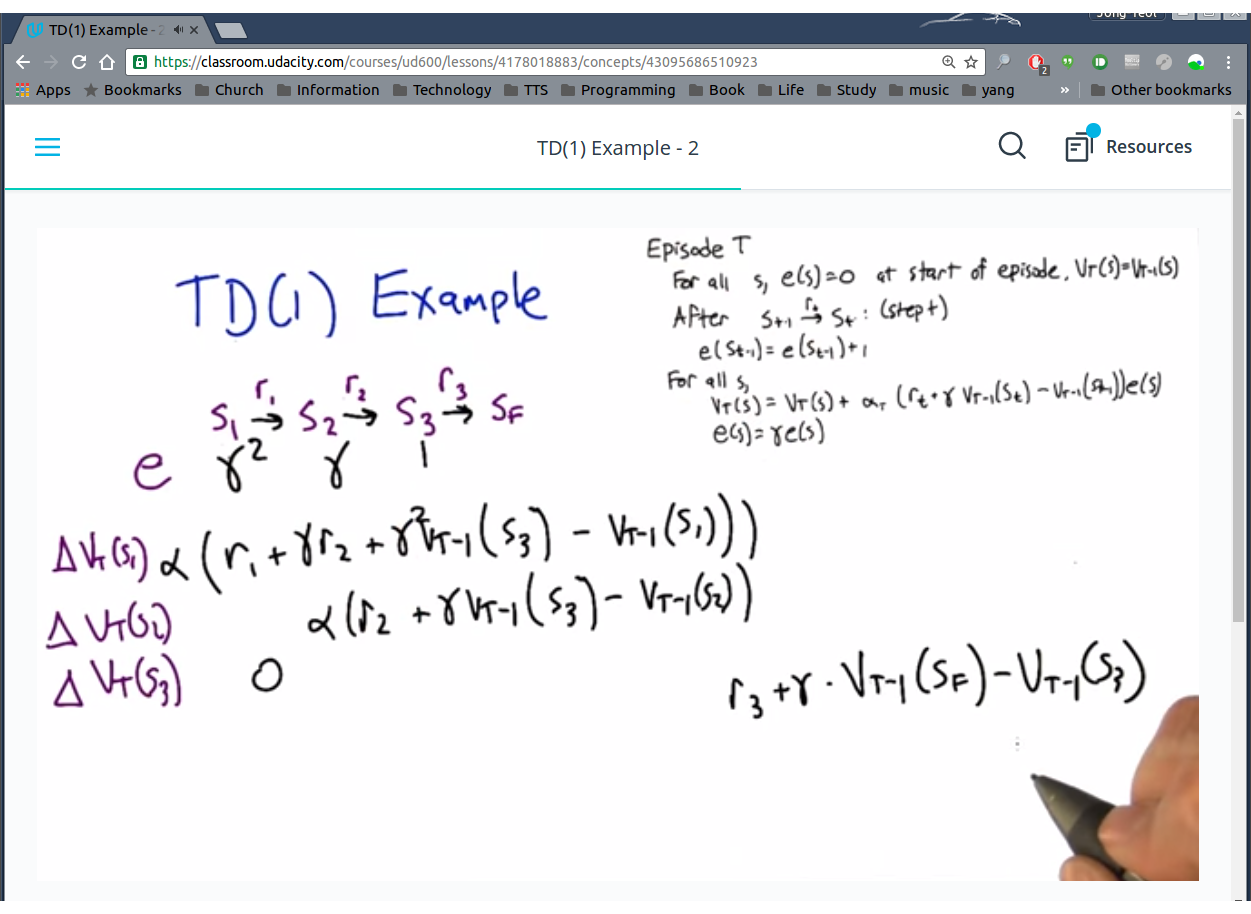 TD(1) Example - 2
Jong Yeol
https://classroom.udacity.com/courses/ud600/lessons/4178018883/concepts/43095686510923
2
Apps Bookmarks Church Information Technology TTS Programming Book Life Study music yang » Other bookmarks
TD(1) Example - 2
Resources
TD(1) Example
Episode T
For all s, e(s)=0 at start of episode, V_T(s)=V_T-1(s)
After S_t-1 →^r_t S_t: (step t)
e(S_t-1)= e(S_t-1)+1
For all s,
V_T(s)= V_T(s)+ α_T (r_t+γ V_T-1(S_t) - V_T-1(S_t-1))e(s)
e(s)=γe(s)
r₁ r₂ r₃
S₁ → S₂ → S₃ → S_F
e γ² γ 1
ΔV_T(S₁) α(r₁+γr₂+γ²V_T-1(S₃) - V_T-1(S₁)))
ΔV_T(S₂) α(r₂ +γV_T-1(S₃)- V_T-1(S₂))
ΔV_T(S₃) 0 r₃+γ·V_T-1(S_F)-V_T-1(S₃)